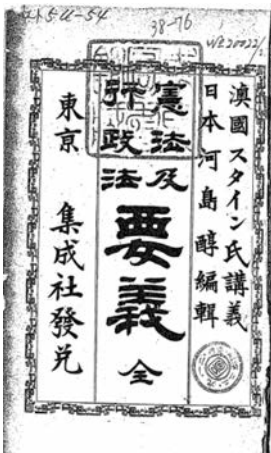 38-76
澳國スタイン氏講義
日本河島醇編輯
憲法及
行政法
要義
全
東京 集成社發兌